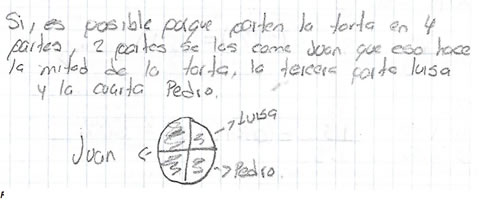 Si, es posible porque parten la torta en 4
partes, 2 partes se las come Juan que eso hace
la mitad de la torta, la tercera parte luisa
y la cuarta Pedro.
LUISA
Juan
Pedro.